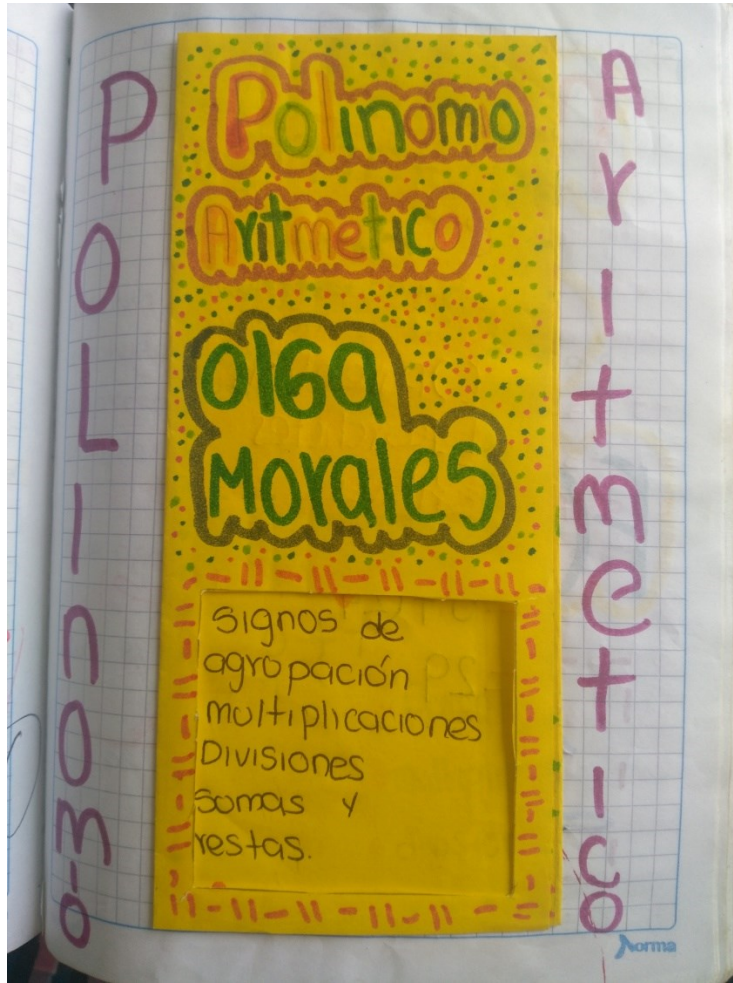 Polinomio
Polinomio
Aritmetico
Olga
Morales
Signos de
agrupación
multiplicaciones
Divisiones
Sumas y
restas.
Aritmetico
Norma